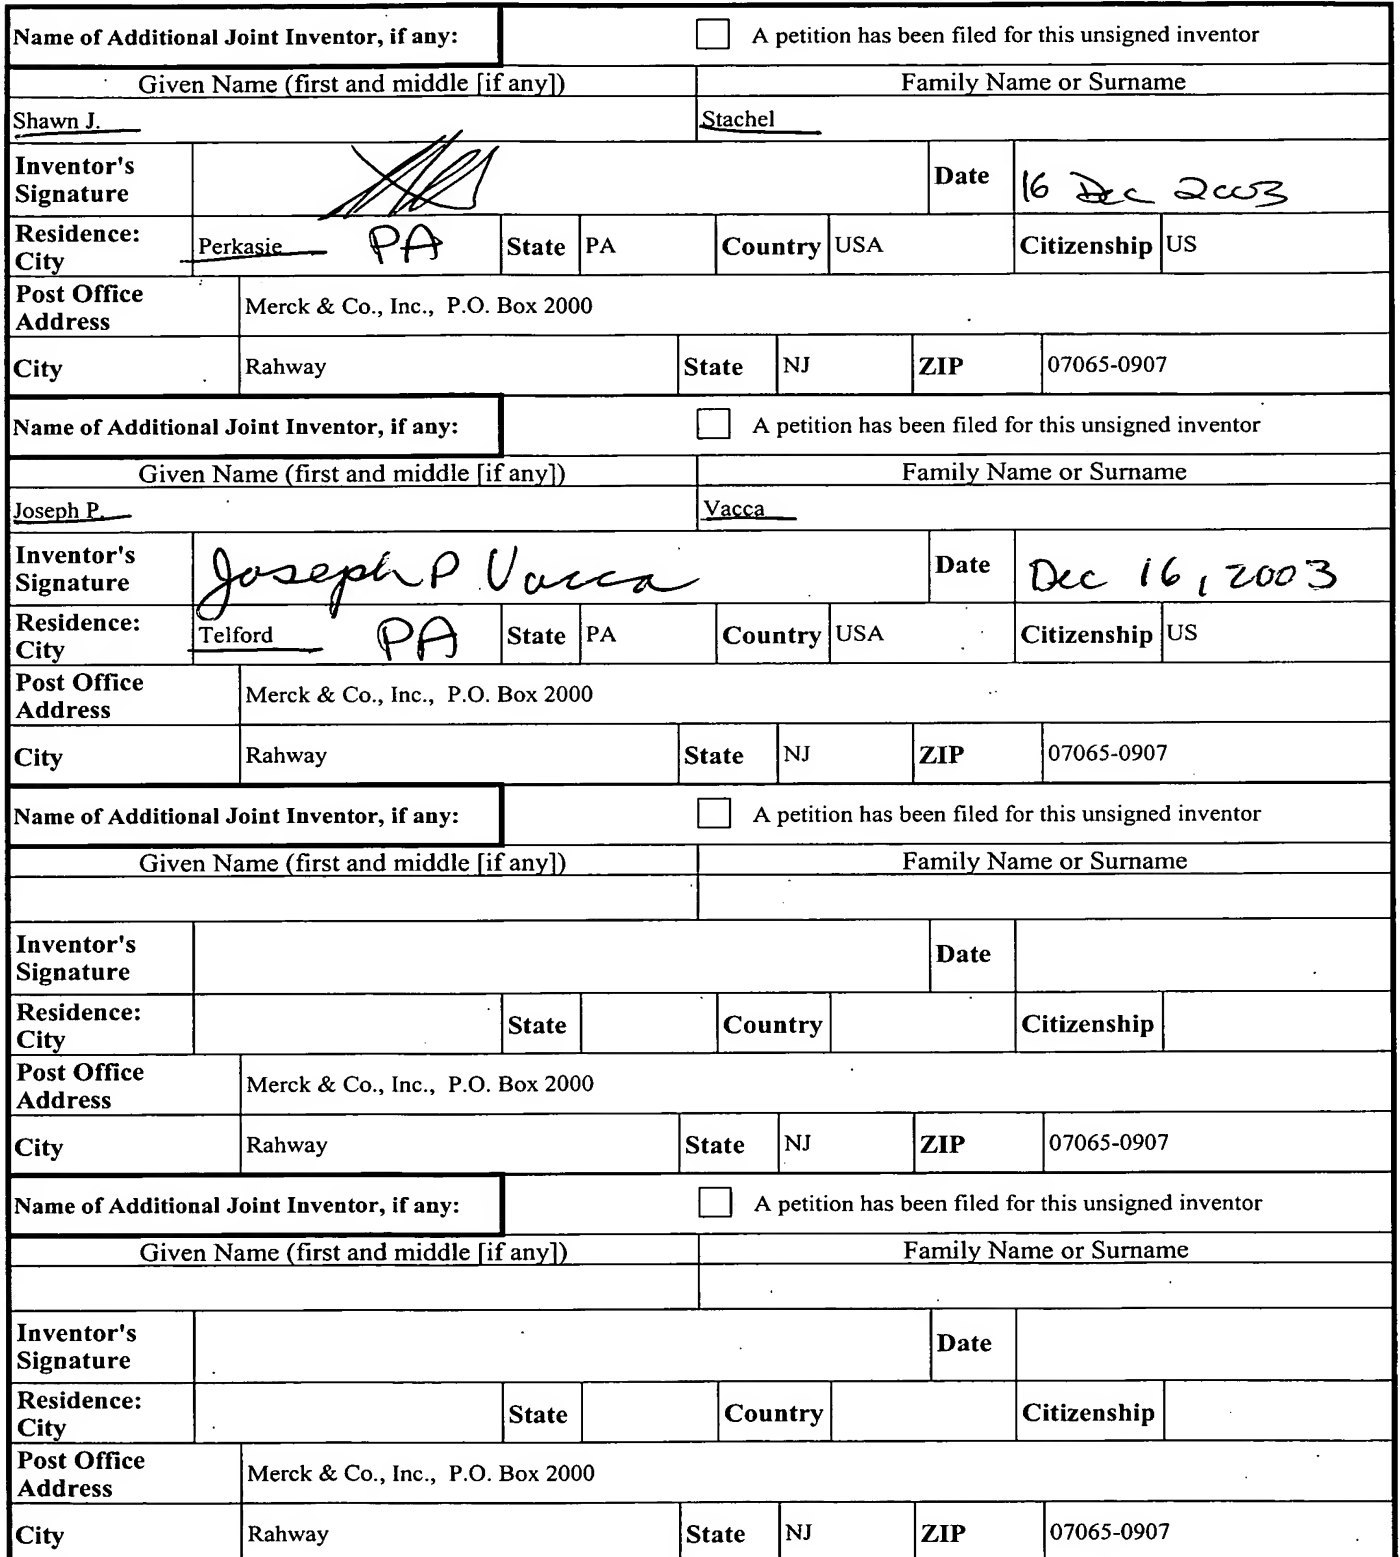 Name of Additional Joint Inventor, if any: A petition has been filed for this unsigned inventor
Given Name (first and middle [if any]) Family Name or Surname
Shawn J. Stachel
Inventor's Signature Date 16 Dec 2003
Residence: City Perkasie PA State PA Country USA Citizenship US
Post Office Address Merck & Co., Inc., P.O. Box 2000
City Rahway State NJ ZIP 07065-0907
Name of Additional Joint Inventor, if any: A petition has been filed for this unsigned inventor
Given Name (first and middle [if any]) Family Name or Surname
Joseph P. Vacca
Inventor's Signature Joseph P Vacca Date Dec 16, 2003
Residence: City Telford PA State PA Country USA Citizenship US
Post Office Address Merck & Co., Inc., P.O. Box 2000
City Rahway State NJ ZIP 07065-0907
Name of Additional Joint Inventor, if any: A petition has been filed for this unsigned inventor
Given Name (first and middle [if any]) Family Name or Surname
Inventor's Signature Date
Residence: City State Country Citizenship
Post Office Address Merck & Co., Inc., P.O. Box 2000
City Rahway State NJ ZIP 07065-0907
Name of Additional Joint Inventor, if any: A petition has been filed for this unsigned inventor
Given Name (first and middle [if any]) Family Name or Surname
Inventor's Signature Date
Residence: City State Country Citizenship
Post Office Address Merck & Co., Inc., P.O. Box 2000
City Rahway State NJ ZIP 07065-0907